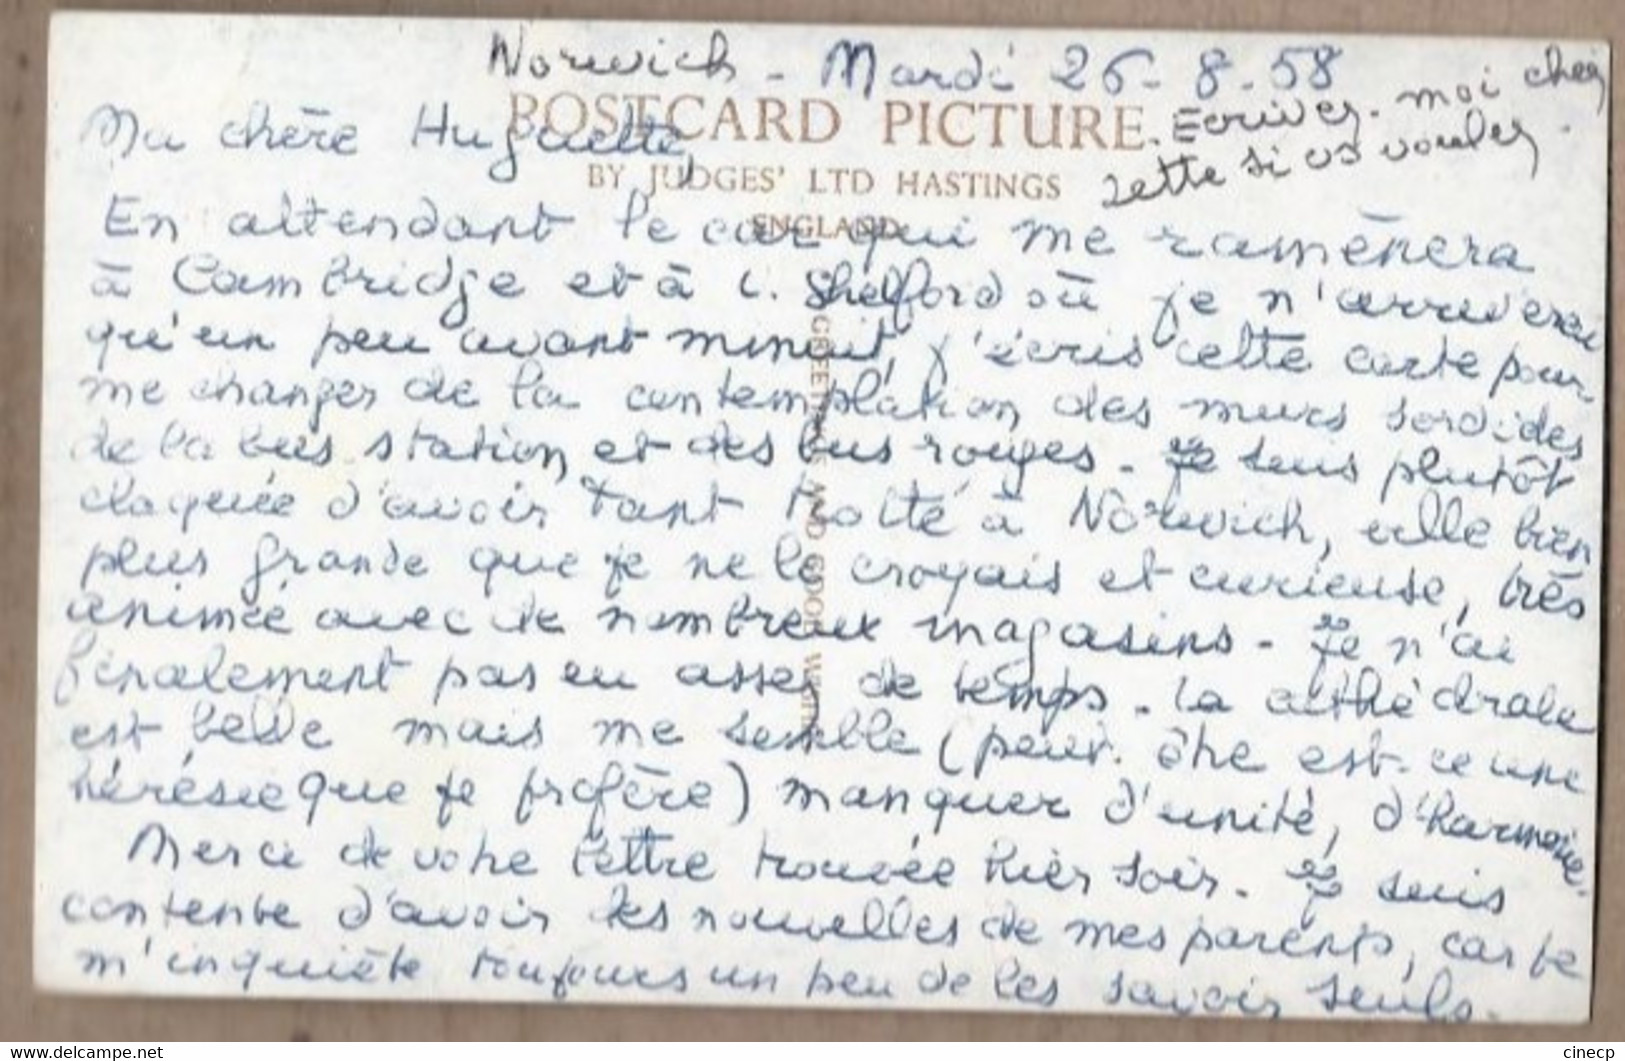 Norwich - Mardi 26-8-58
POSTCARD PICTURE
. Ecrivez-moi chez
Zette si vs voulez.
Ma chère Huguette,
BY JUDGES' LTD HASTINGS
ENGLAND
En attendant le car qui me ramènera
à Cambridge et à L. Shelford où je n'arriverai
qu'un peu avant minuit, j'écris cette carte pour
me changer de la contemplation des murs sordides
de la bus station et des bus rouges - Je suis plutôt
claquée d'avoir tant trotté à Norwich, ville bien
plus grande que je ne le croyais et curieuse, très
animée avec de nombreux magasins - Je n'ai
finalement pas eu assez de temps - La cathédrale
est belle mais me semble (peut-être est-ce une
hérésie que je profère) manquer d'unité, d'harmonie.
Merci de votre lettre trouvée hier soir - Je suis
contente d'avoir des nouvelles de mes parents, car je
m'inquiète toujours un peu de les savoir seuls.
GREETINGS AND GOOD WISHES
cinecp